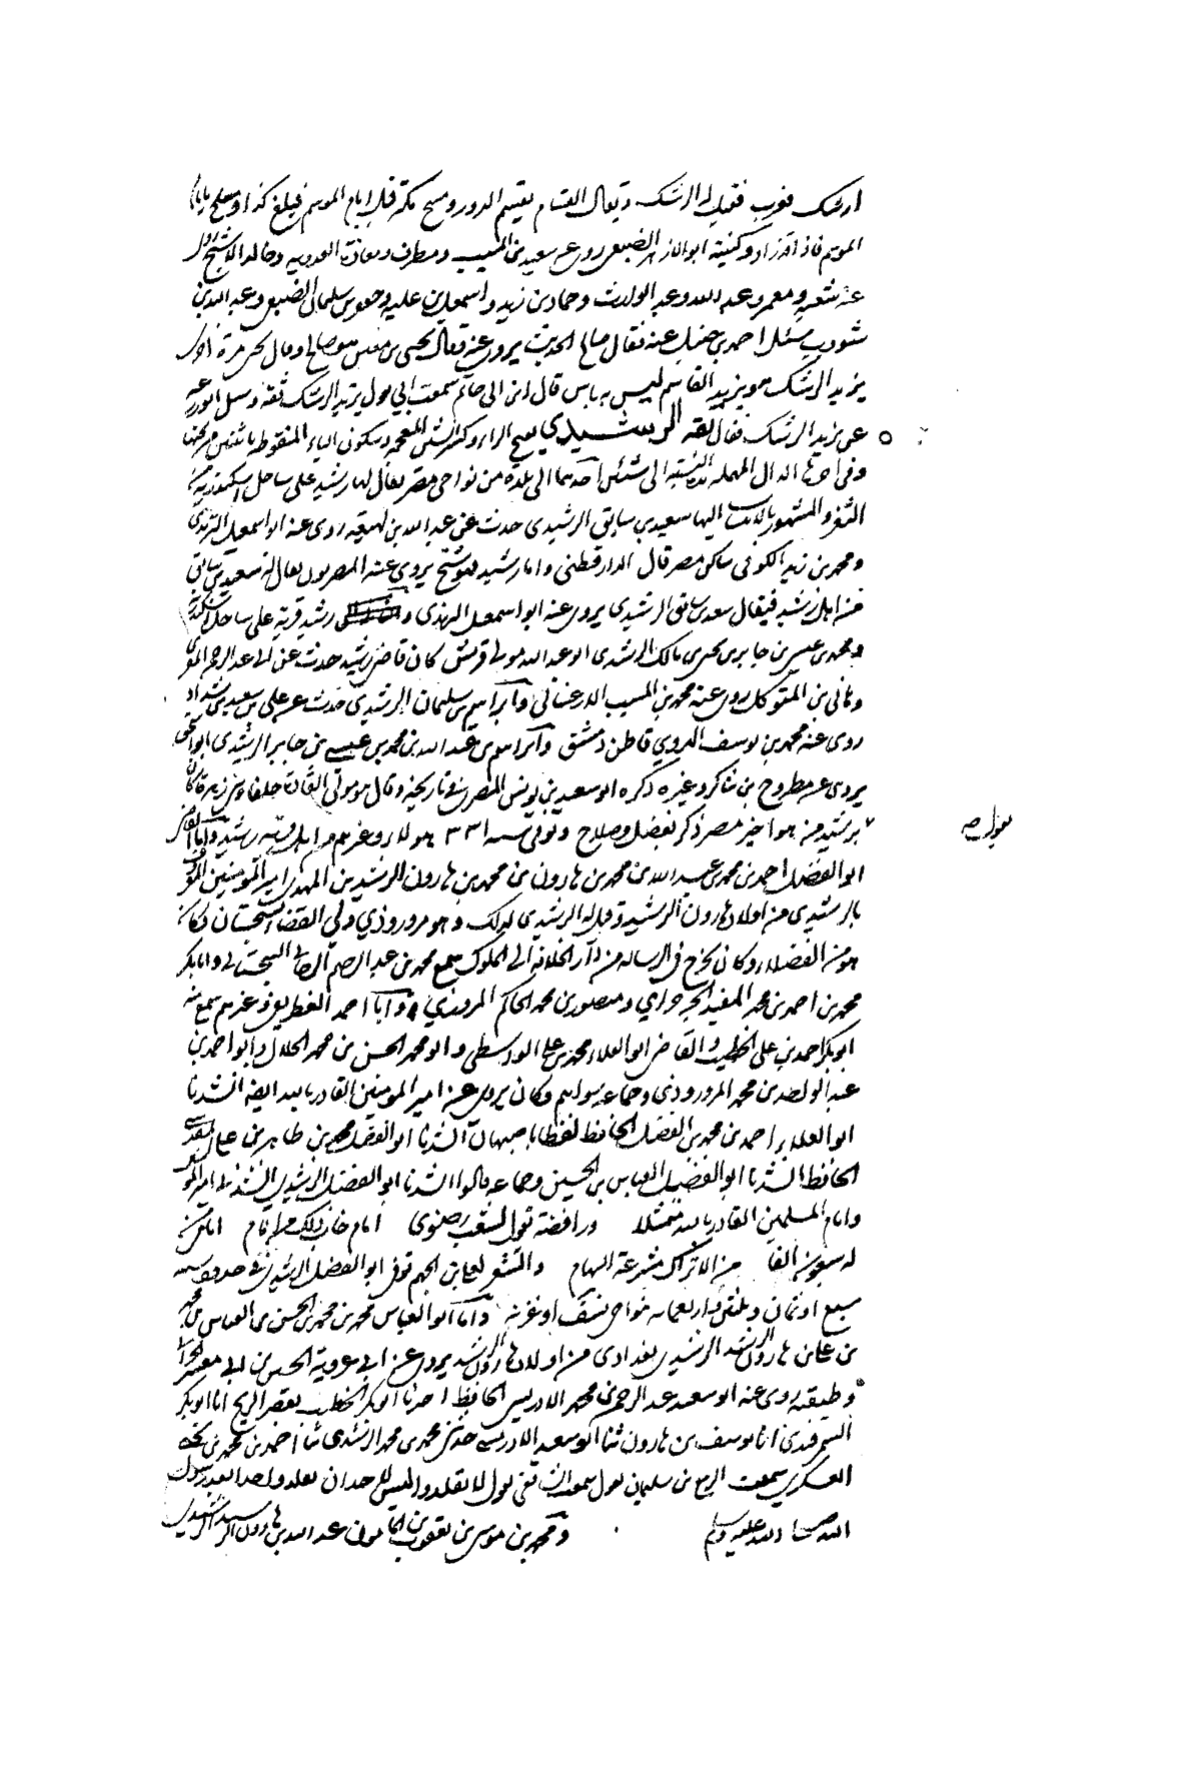 ارشك فعرب فقيل له الرشك ويقال القسام يقسم الدور ومسح مكة قبل ايام الموسم فبلغ كذا ومسح ايام
الموسم فاذا قد زاد وكنيته ابو الازهر الضبعي روى عن سعيد بن المسيب ومطرف ومعاذة العدوية وخالد الاشج روى
عنه شعبة ومعمر وعبد الوارث وحماد بن زيد واسمعيل بن علية وجعفر بن سليمان الضبعي وعبد الله بن
شوذب سئل احمد بن حنبل عنه فقال صالح الحديث يروى عنه وقال يحيى بن معين هو صالح وقال يحيى مرة اخرى
يزيد الرشك هو يزيد القاسم ليس به باس قال ابن ابي حاتم سمعت ابي يقول يزيد الرشك ثقة وسئل ابو زرعة
عن يزيد الرشك فقال ثقة الرشيدي بفتح الراء وكسر الشين المعجمة وسكون الياء المنقوطة باثنتين من تحتها
وفي اخرها الدال المهملة هذه النسبة الى شيئين احدهما الى بلدة من نواحي مصر يقال لها رشيد على ساحل اسكندرية من
الثغر والمشهور بالانتساب اليها سعيد بن سابق الرشيدي حدث عن عبد الله بن لهيعة روى عنه ابو اسمعيل الترمذي
ومحمد بن زيد الكوفي ساكن مصر قال الدارقطني واما رشيد فهو شيخ يروي عنه المصريون يقال له سعيد بن سابق
من اهل رشيد فيقال سعيد بن سابق الرشيدي يروى عنه ابو اسمعيل الترمذي رشيد قرية على ساحل اسكندرية
ومحمد بن عيسى بن جابر بن يحيى بن مالك الرشيدي ابو عبد الله مولى قريش كان قاضي رشيد حدث عن ابي عبد الرحمن المقرى
وهاني بن المتوكل روى عنه محمد بن المسيب الارغياني وابراهيم بن سليمان الرشيدي حدث عن علي بن سعيد بن شداد
روى عنه محمد بن يوسف الهروي قاطن دمشق وابراهيم بن عبد الله بن محمد بن عيسى بن جابر الرشيدي ابو اسحق
يروى عن مطروح بن شاكر وغيره ذكره ابو سعيد بن يونس المصري في تاريخه وقال هو مولى القارة حلفاء بني زهرة كان
برشيد من مواخير مصر ذكر بفضل وصلاح وتوفي سنه ٣٣١ هولاء وغيرهم من اهل قرية رشيد واما القاضي
ابو الفضل احمد بن محمد بن عبد الله بن محمد بن هارون بن محمد بن هارون الرشيد بن المهدي امير المؤمنين المعروف
بالرشيدي من اولاد هارون الرشيد وقيل له الرشيدي لذلك وهو مروروذي ولي القضا بسجستان وكان
هو من الفضلاء وكان يخرج في الرسالة من دار الخلافة الى الملوك سمع محمد بن عبد الرحيم السجستاني وابا بكر
محمد بن احمد بن محمد المفيد الجرجراي ومنصور بن محمد الحاكم المروزي وابا احمد الغطريفي وغيرهم سمع منه
ابو بكر احمد بن علي الخطيب والقاضي ابو العلاء محمد بن علي الواسطي وابو محمد الحسن بن محمد الخلال وابو احمد بن
عبد الواحد بن محمد المروروذي وجماعة سواهم وكان يروى عن امير المومنين القادر بالله ايضا انشدنا
ابو العلاء احمد بن محمد بن الفضل الحافظ لفظا باصبهان انشدنا ابو الفضل محمد بن طاهر بن علي المقدسي
الحافظ انشدنا ابو الفضل العباس بن الحسين وجماعة قالوا انشدنا ابو الفضل الرشيدي انشدني امير المو
وامام المسلمين القادر بالله متمثلا ورافضة تقول بشعب رضوى امام خاب ذلك من امام امامي من
له سبعون الفا من الاتراك مشرعة السهام والشعر لعلي بن الجهم توفي ابو الفضل الرشيدي في حدود سنه
سبع او ثمان وثلثين واربعمائه بنواحي نسف او غزنة واما ابو العباس محمد بن محمد بن الحسن بن العباس بن محمد
بن علي بن هارون الرشيد الرشيدي بغدادي من اولاد هارون الرشيد يروى عن ابي عروبة الحسين بن ابي معشر الحراني
وطبقته روى عنه ابو سعيد عبد الرحمن بن محمد الادريسي الحافظ اخبرنا ابو بكر الخطيب بقصر الريح انا ابو بكر
السمرقندي انا يوسف بن هارون ثنا ابو سعيد الادريسي حدثني محمد بن محمد الرشيدي ثنا احمد بن محمد بن
العسكري سمعت الربيع بن سليمان يقول سمعت الشافعي يقول لا تقلدوا ليس لاحد ان يقلد واحدا بعد رسول
الله صلى الله عليه وسلم ومحمد بن موسى بن يعقوب بن المامون عبد الله بن هارون الرشيد الرشيدي